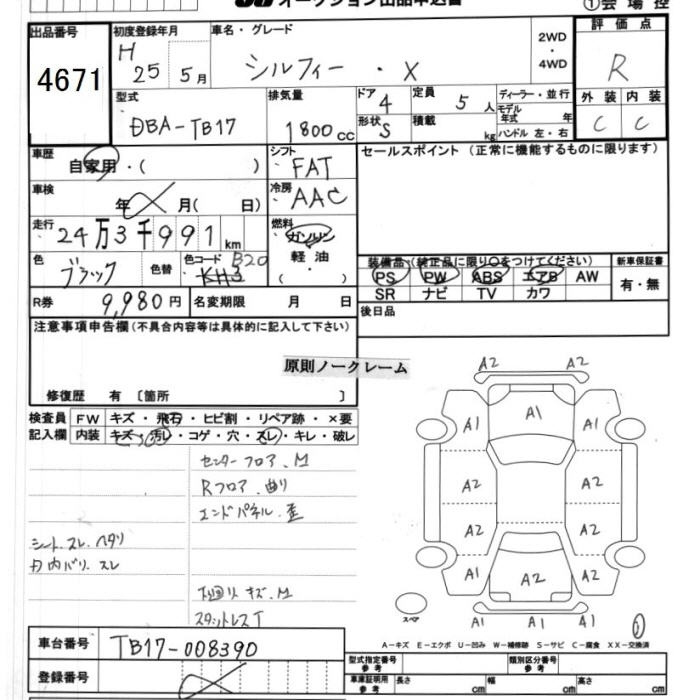 オークション出品申込書
①会場控
出品番号
4671
初度登録年月
H 25 5月
車名・グレード
シルフィー・X
2WD
・
4WD
評価点
R
型式
DBA-TB17
排気量
1800cc
ドア
4
定員
5人
ディーラー・並行
形状
S
積載
kg
モデル年式 年
ハンドル 左・右
外装 内装
C C
車歴
自家用・( )
シフト
FAT
セールスポイント (正常に機能するものに限ります)
車検
年 月( 日)
冷房
AAC
走行
24万3千991km
燃料
ガソリン
軽油
・
( )
色
ブラック
色替
色コード B20
KH3
R券
9,980円
名変期限 月 日
装備品(装正品に限り○をつけてください)
新車保証書
PS PW ABS エアB AW
SR ナビ TV カワ
有・無
後日品
注意事項申告欄(不具合内容等は具体的に記入して下さい)
原則ノークレーム
修復歴 有 〔箇所 〕
検査員
記入欄
FW キズ・飛石・ヒビ割・リペア跡・×要
内装 キズ・汚レ・コゲ・穴・スレ・キレ・破レ
センターフロア.M
Rフロア.曲り
エンドパネル.歪
シート.スレ.ヘタリ
内バリ.スレ
下回りキズ.M
スタットレスT
A2 A2
A1 A1 A1
A2 A2
A2 A2
A1 A2 A1
A1 A1 A1
スペア
A－キズ E－エクボ U－凹み W－補修跡 S－サビ C－腐食 XX－交換済
車台番号
TB17-008390
登録番号
型式指定番号
参考
類別区分番号
参考
車庫証明用
参考
長さ cm 幅 cm 高さ cm